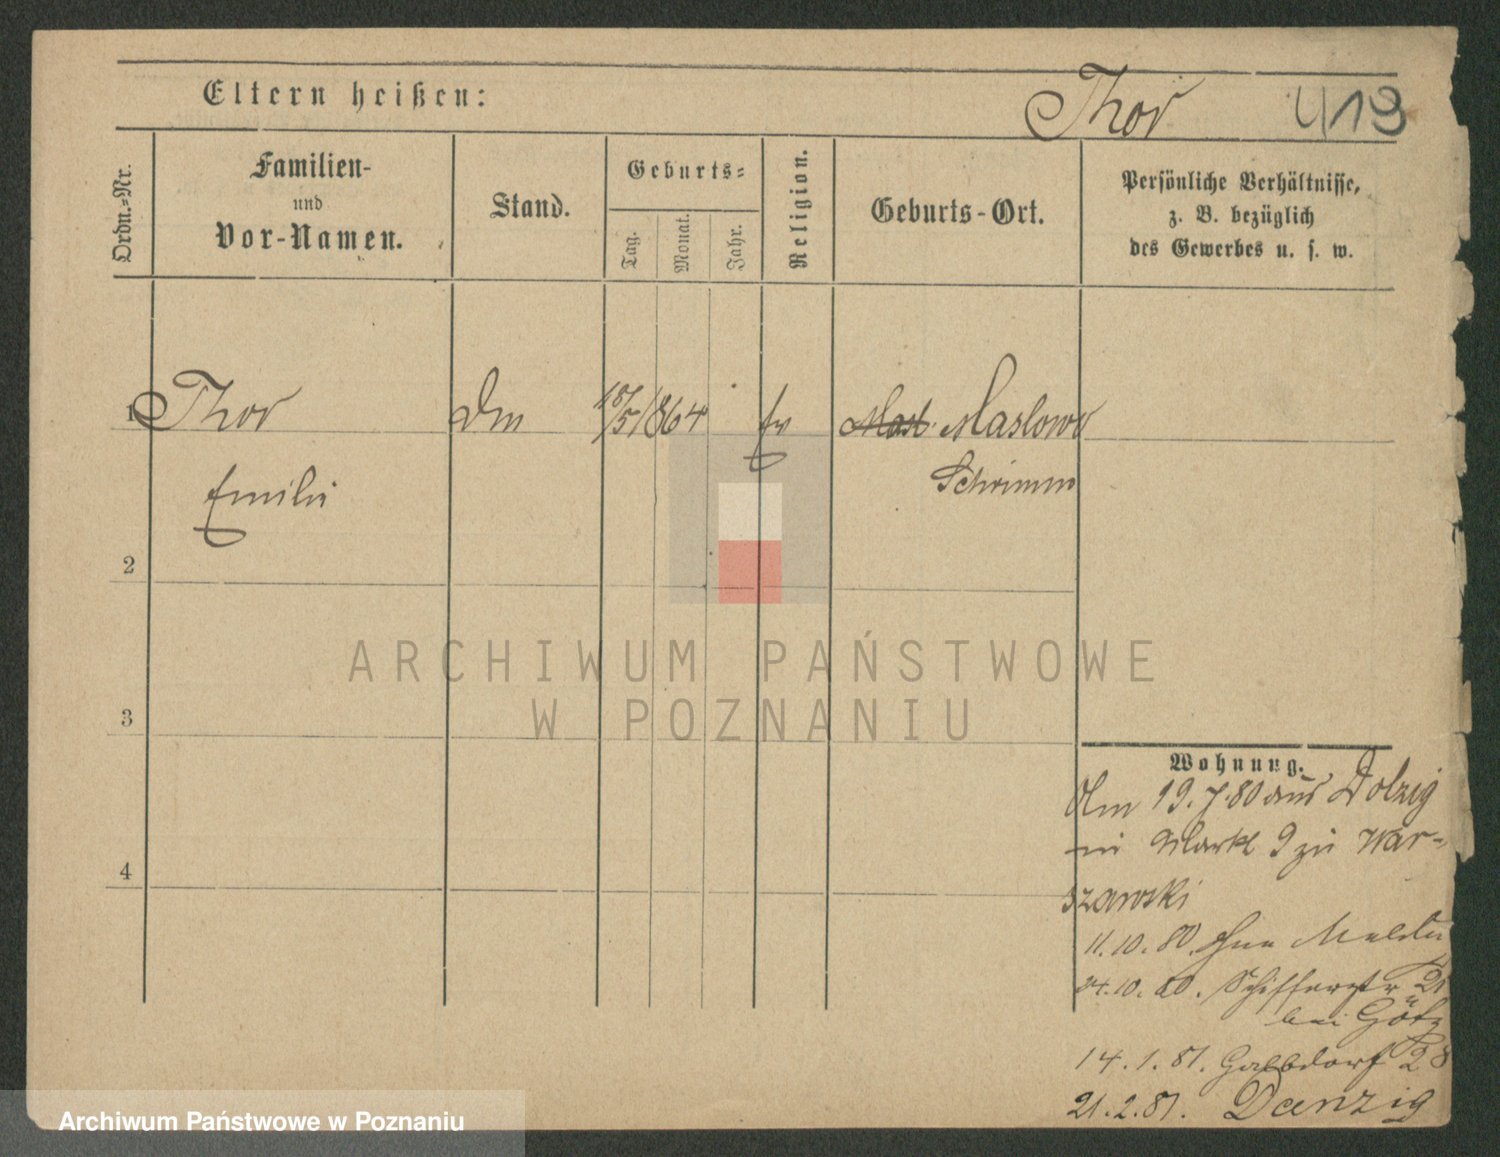 Eltern heißen:
Thor
419
Ordn.-Nr.
Familien-
und
Vor-Namen.
Stand.
Geburts-
Tag.
Monat.
Jahr.
Religion.
Geburts-Ort.
Persönliche Verhältnisse,
z. B. bezüglich
des Gewerbes u. s. w.
1 Thor 5/1864 Maslowo
Schrimm
2
3
4
ARCHIWUM PAŃSTWOWE
W POZNANIU
Wohnung.
Am 19.7.80 aus Dolzig
Markt 9 zu War-
szawski
11.10.80.
10.80. Schifferstr 21
bei Götz
14.1.81. 28
21.2.81. Danzig
Archiwum Państwowe w Poznaniu